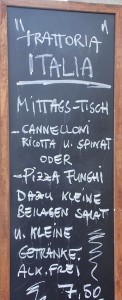 "TRATTORIA"
ITALIA
MITTAGS-TISCH
- CANNELLONI
RICOTTA U. SPINAT
ODER
- PIZZA FUNGHI
DAZU KLEINE
BEILAGEN SALAT
U. KLEINE
GETRÄNKE.
ALK. FREI
7,50